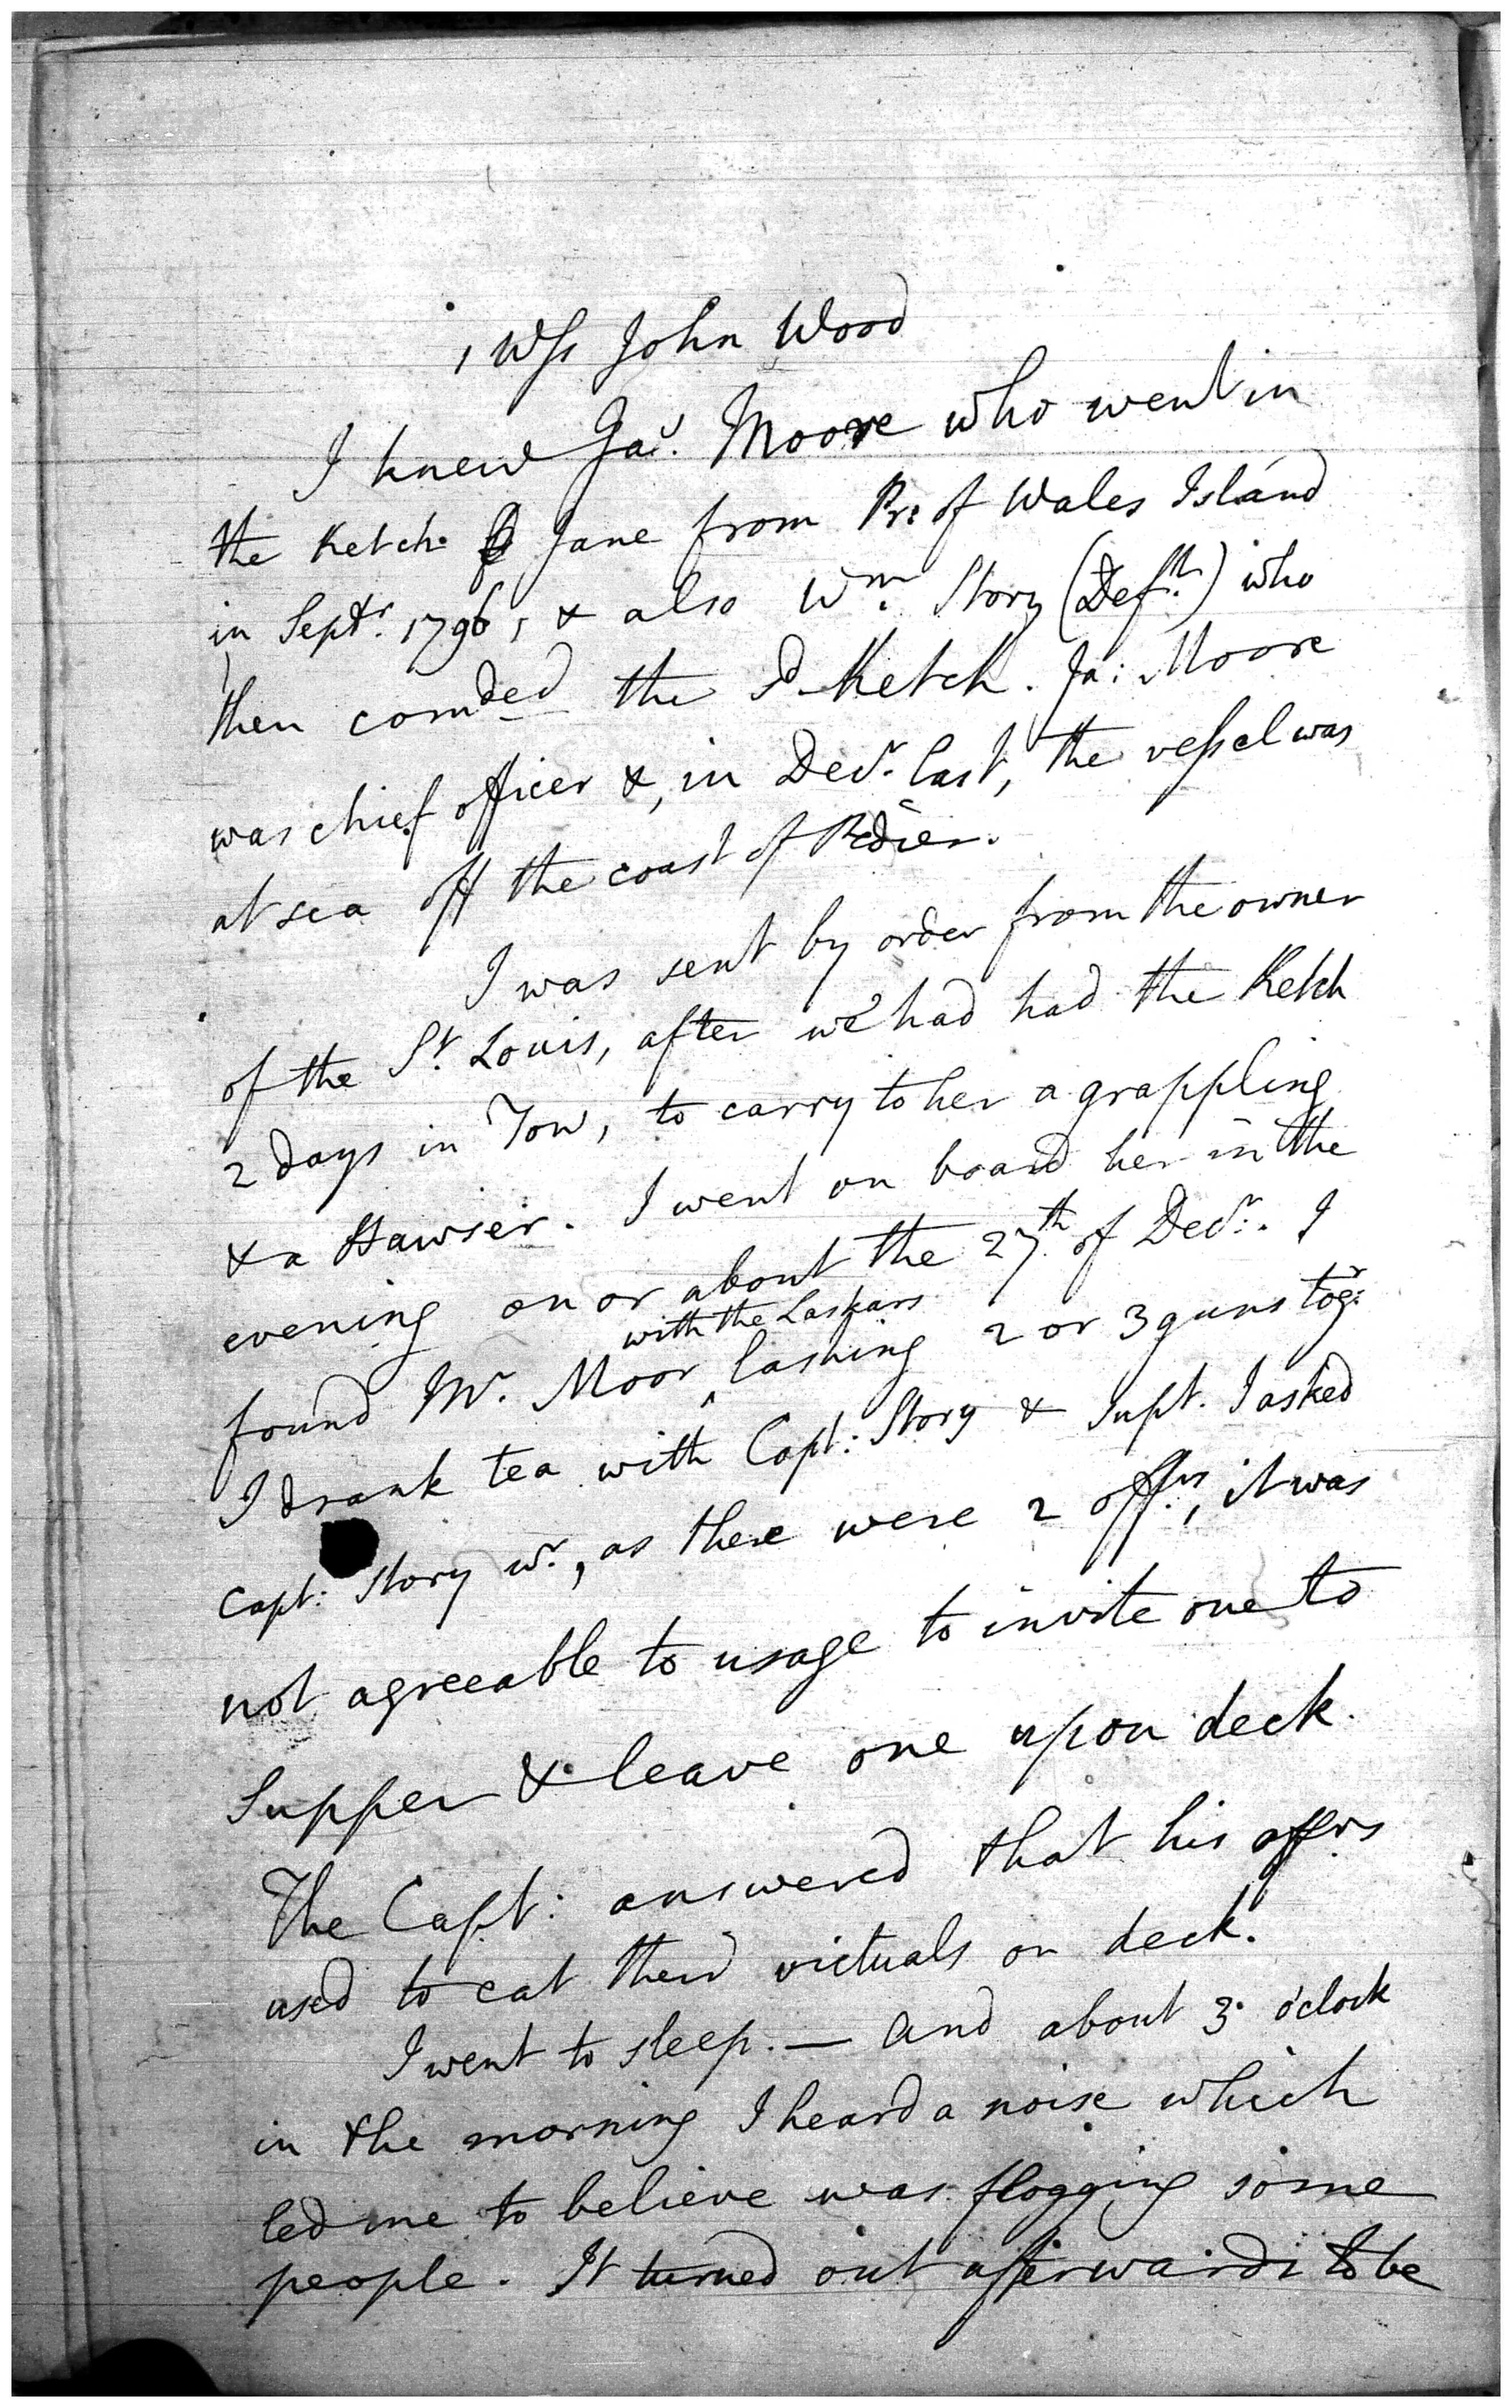 1 Wss John Wood
I knew Jas. Moore who went in
the Ketch Jane from Pr: of Wales Island
in Septr. 1796, & also Wm. Story (Deft.) who
then comded the sd Ketch. Ja: Moore
was chief officer &, in Decr. last, the vessel was
at sea off the coast of Pedier.
I was sent by order from the owner
of the St. Louis, after we had had the Ketch
2 days in Tow, to carry to her a grappling
& a Hawser. I went on board her in the
evening on or about the 27th. of Decr:. I
found Mr. Moor ^ with the Laskars lashing 2 or 3 guns togr:
I drank tea with Capt: Story & Supt. I asked
Capt: Story wr., as there were 2 offrs, it was
not agreeable to usage to invite one to
Supper & leave one upon deck.
The Capt: answered that his offrs
used to eat their victuals on deck.
I went to sleep. — And about 3 o'clock
in the morning I heard a noise which
led me to believe was flogging some
people. It turned out afterwards to be